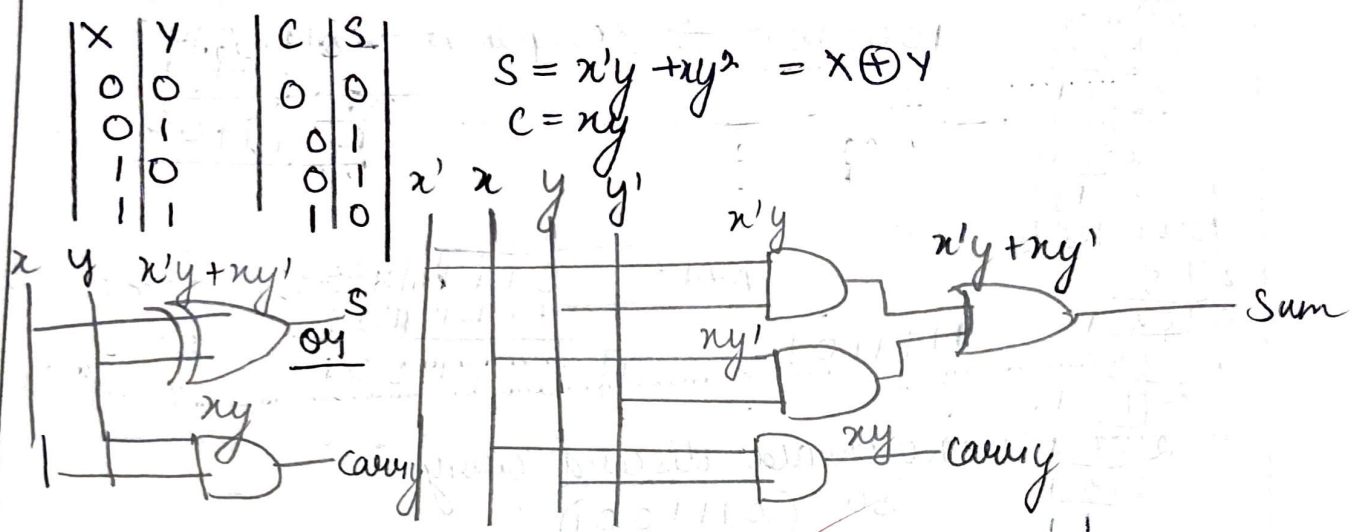 X Y C S
0 0 0 0
0 1 0 1
1 0 0 1
1 1 1 0
S = x'y + xy² = X ⊕ Y
C = xy
x y x'y + xy' S
or
xy
carry
x' x y y'
x'y
x'y + xy'
Sum
xy'
xy
carry